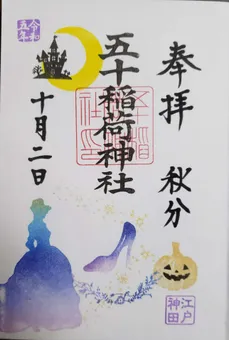 奉拝
秋分
五十稲荷神社
令和五年
十月二日
江戸神田